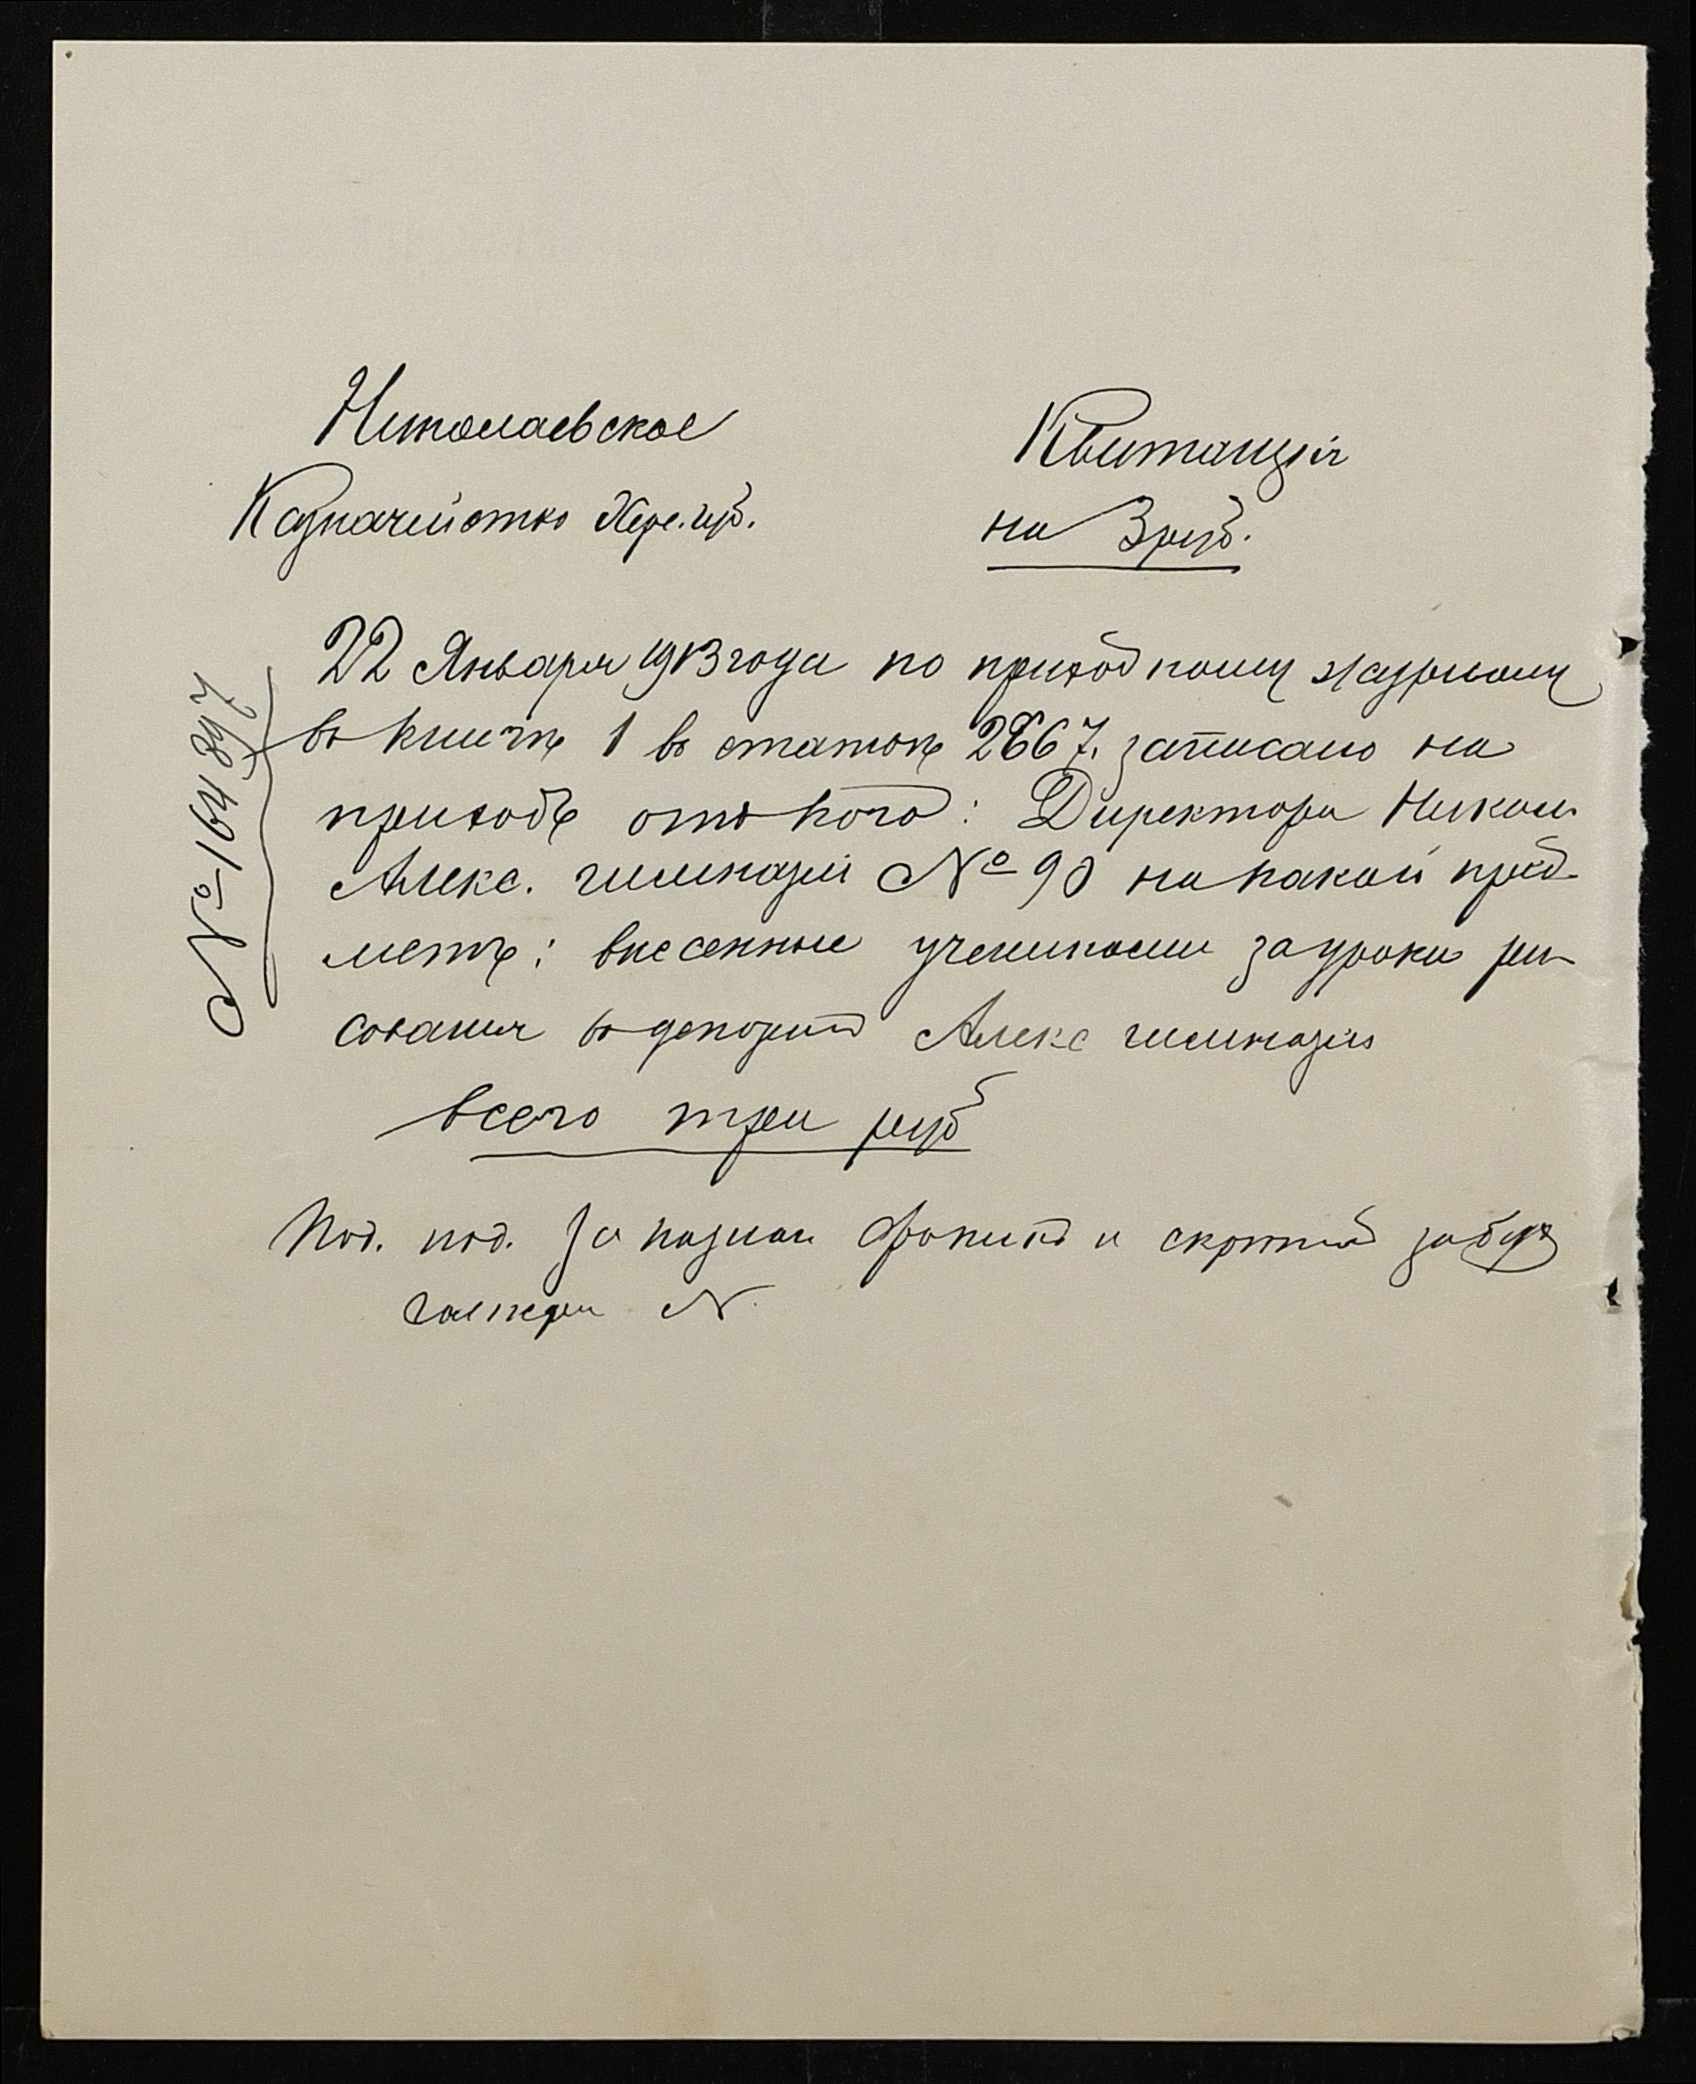 Николаевское
Казначейство Херс. губ.
Квитанція
на 3 руб.
№ 164897
22 Января 1913 года по приходному журналу
въ книгѣ 1 въ статьѣ 2867. записано на
приходъ отъ кого: Директора Никол.
Алекс. гимназіи № 90 на какой пред-
метъ: внесенные учениками за уроки ри-
сованія въ депозитъ Алекс гимназіи
всего три руб
Под. под. За казнач и скрѣпилъ за бух
галтера N.